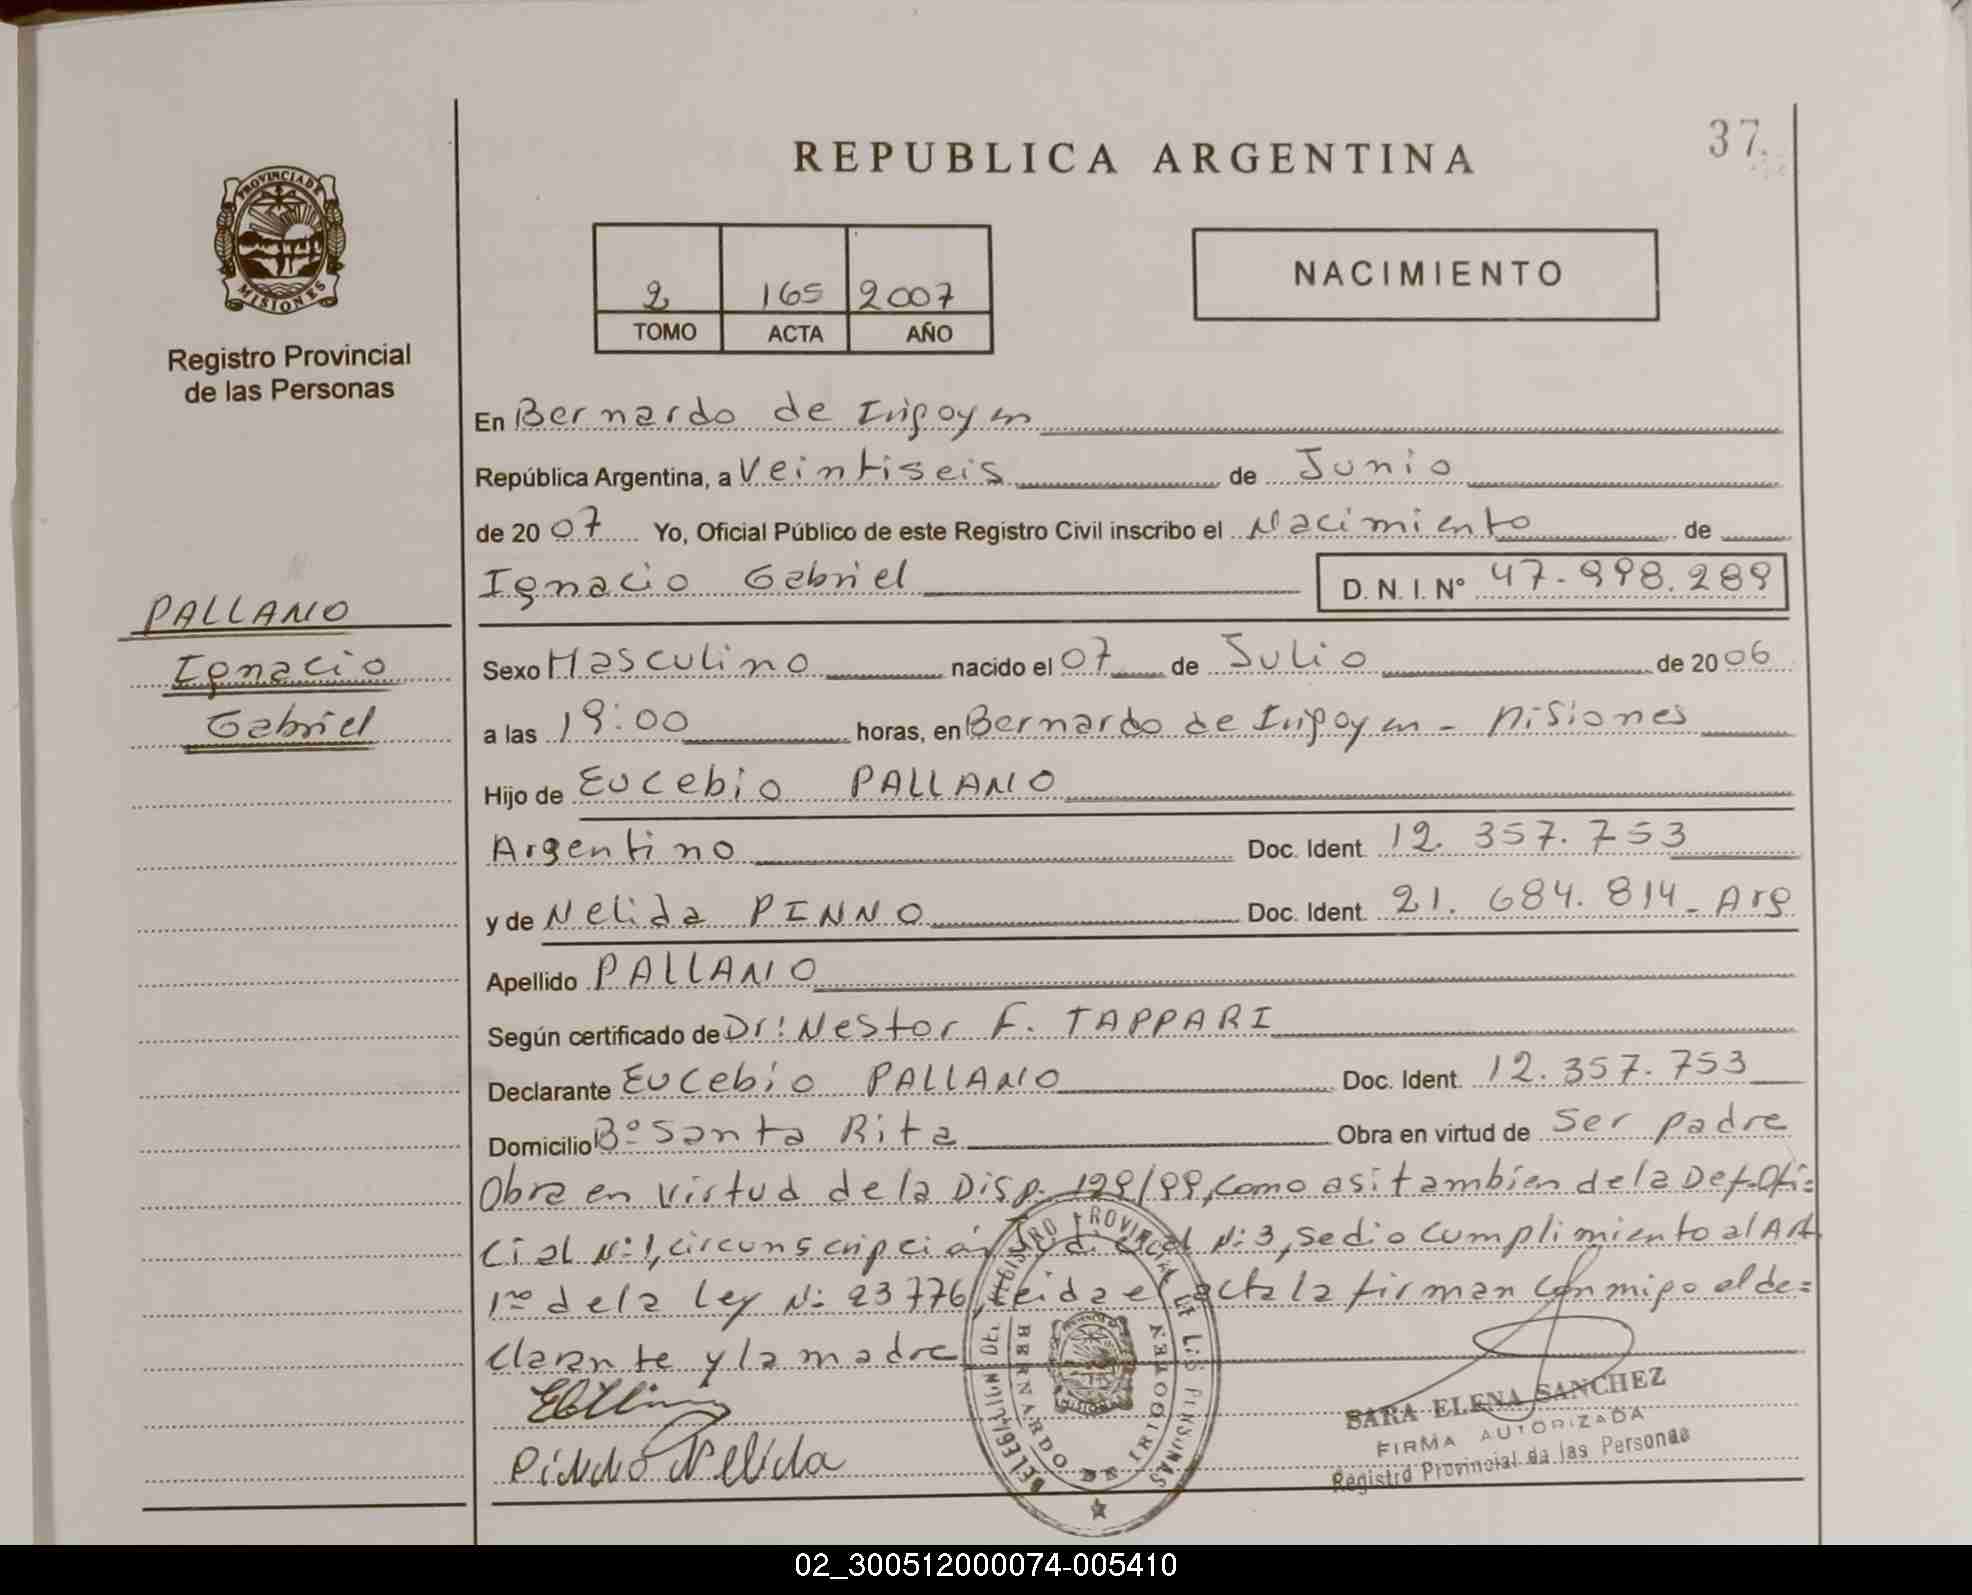 REPUBLICA ARGENTINA
37
PROVINCIA DE
MISIONES
Registro Provincial
de las Personas
2 165 2007
TOMO ACTA AÑO
NACIMIENTO
En Bernardo de Irigoyen
República Argentina, a Veintiseis de Junio
de 2007 Yo, Oficial Público de este Registro Civil inscribo el Nacimiento de
Ignacio Gabriel D. N. I. N° 47.998.289
PALLANO
Ignacio
Gabriel
Sexo Masculino nacido el 07 de Julio de 2006
a las 19:00 horas, en Bernardo de Irigoyen - Misiones
Hijo de Eucebio PALLANO
Argentino Doc. Ident. 12.357.753
y de Nelida PINNO Doc. Ident. 21.684.814 - Arg
Apellido PALLANO
Según certificado de Dr: Nestor F. TAPPARI
Declarante Eucebio PALLANO Doc. Ident. 12.357.753
Domicilio B° Santa Rita Obra en virtud de Ser padre
Obra en virtud de la Disp. 129/99, como asi tambien de la Def. Ofi=
cial N:1, circunscripción Judicial N:3, se dio cumplimiento al Art
1ro de la Ley N: 23776, leida el acta la firman conmigo el de=
clarante y la madre
Pinno Nelida
REGISTRO PROVINCIAL DE LAS PERSONAS
BERNARDO DE IRIGOYEN
SARA ELENA SANCHEZ
FIRMA AUTORIZADA
Registro Provincial de las Personas
02_300512000074-005410